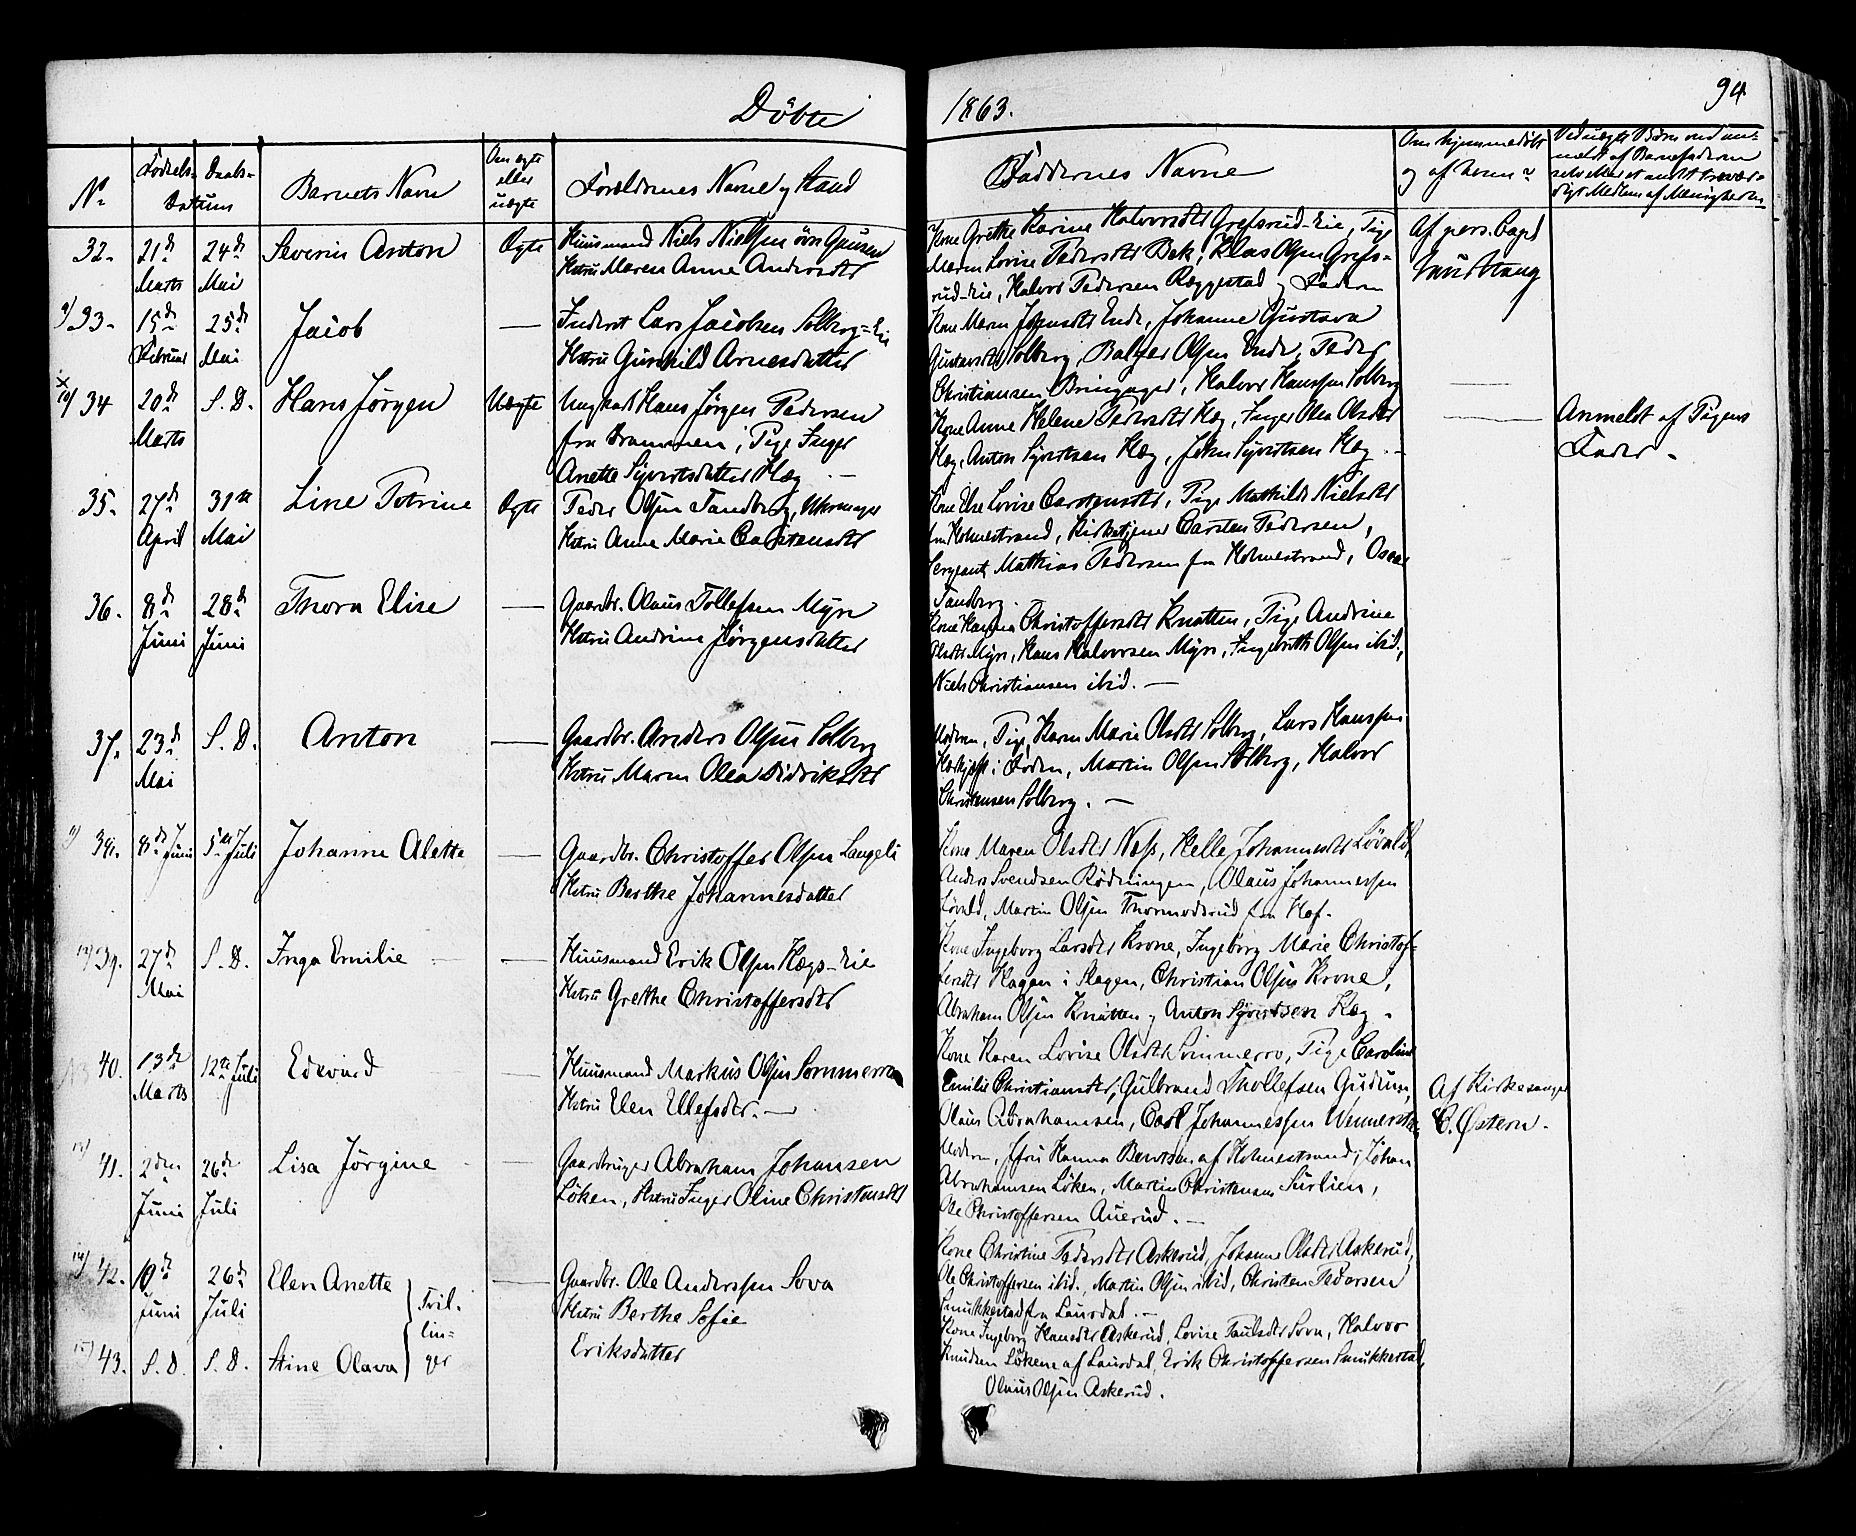 Döbte
1863.
94
No
Födsels-
Daabs-
Datum
Barnets Navn
Om ægte
eller
uægte
Forældrenes Navne og Stand
Faddernes Navne
Om hjemmedöbt
og af hvem?
Ved uægte Børn om an-
meldt af Barnefaderen
selv eller et andet trovær-
digt Medlem af Menigheden
32.
21de
Marts
24de
Mai
Severin Anton
Ægte
Huusmand Niels Nielsen
Hstru Maren Anne Andersdtr
Kone Grethe Karine Halvorsdtr Grefsrud-Eie, Pige
Maren Lovise Pedersdtr Bek, Klas Olsen Grefs-
rud-Eie, Halvor Pedersen Reggestad og Faderen
Af pers. Capl
9/ 33.
15de
Februar
25de
Mai
Jacob
—
Inderst Lars Jacobsen Solberg-Eie
Hstru Gunhild Arnesdatter
Kone Maren Jensdtr Ende, Johanne Gustava
Gustavsdtr Solberg, Balzer Olsen Ende, Peder
Christiansen Bringager, Halvor Hanssen Solberg
10/ 34
20de
Marts
S. D.
Hans Jörgen
Uægte
Ungkarl Hans Jörgen Pedersen
fra Drammen, Pige Inger
Anette Syvertsdatter Hæg
Kone Anne Helene Pedersdtr Hæg, Inger Olea Olsdtr
Hæg, Anton Syvertsen Hæg, Johan Syvertsen Hæg.
Anmeldt af Pigens
Fader.
35.
27de
April
31te
Mai
Line Petrine
Ægte
Peder Olsen Sandberg, Uhrmager
Hstru Anne Marie Carstensdtr
Kone Else Lovise Carstensdtr, Pige Mathilde Nielsdtr
fra Holmestrand, Kirketjener Carsten Pedersen,
Sergeant Mathias Pedersen fra Holmestrand, Oscar
Sandberg.
36.
8de
Juni
28de
Juni
Thora Elise
—
Gaardbr. Olaus Tollefsen Myre
Hstru Andrine Jørgensdatter
Kone Hanna Christoffersdtr Knatten, Pige Andrine
Olsdtr Myre, Hans Halvorsen Myre, Ingebreth Olsen ibid.,
Niels Christiansen ibid. —
37.
23de
Mai
S. D.
Anton
—
Gaardbr. Anders Olsen Solberg
Hstru Maren Olea Didriksdtr
Moderen, Pige Karen Marie Olsdtr Solberg, Lars Hanssen
i Foden, Martin Olsen Solberg, Halvor
Christensen Solberg. —
11/ 38.
8de Juni
5te Juli
Johanne Alette
—
Gaardbr. Christoffer Olsen Langeli
Hstru Berthe Johannesdatter
Kone Maren Olsdtr Næss, Helle Johannesdtr Løvald,
Anders Svendsen Rødningen, Olaus Johannessen
Løvald, Martin Olsen Thormodsrud fra Hof.
12/ 39.
27de
Mai
S. D.
Inga Emilie
—
Huusmand Erik Olsen Hægs-Eie
Hstru Grethe Christoffersdtr
Kone Ingeborg Larsdtr Krone, Ingeborg Marie Christof-
fersdtr Hagan i Slagen, Christian Olsen Krone,
Abraham Olsen Knatten og Anton Syvertsen Hæg.
40.
13de
Marts
12te Juli
Edvard
—
Huusmand Markus Olsen Sommerro
Hstru Elen Ellefsdtr. —
Kone Karen Lovise Olsdtr Sommerro, Pige Caroline
Emilie Christiansdtr, Gulbrand Thollefsen Gudum,
Olaus Abrahamsen, Carl Johannessen
Af Kirkesanger
C. Østern.
13/ 41.
2den
Juni
26de
Juli
Lisa Jörgine
—
Gaardbruger Abraham Johansen
Löken, Hstru Inger Oline Christensdtr
Moderen, Jfru Hanna Berntsen af Holmestrand, Johan
Abrahamsen Löken, Martin Christensen Surlien,
Ole Christoffersen Auerud. —
14/ 42.
10de
Juni
26de
Juli
Elen Anette
Tvil-
lin-
ger
—
Gaardbr. Ole Anderssen Sova
Hstru Berthe Sofie
Eriksdatter
Kone Christine Pedersdtr Askerud, Johanne Olsdtr Askerud,
Ole Christoffersen ibid., Martin Olsen ibid, Christen Pedersen
Smukkestad fra Laursdal. —
15/ 43.
S. D.
S. D.
Stine Olava
Kone Ingeborg Hansdtr Askerud, Lovise Paulsdtr Sova, Halvor
Knudsen Lökene af Laursdal, Erik Christoffersen Smukkestad,
Olaus Olsen Askerud.